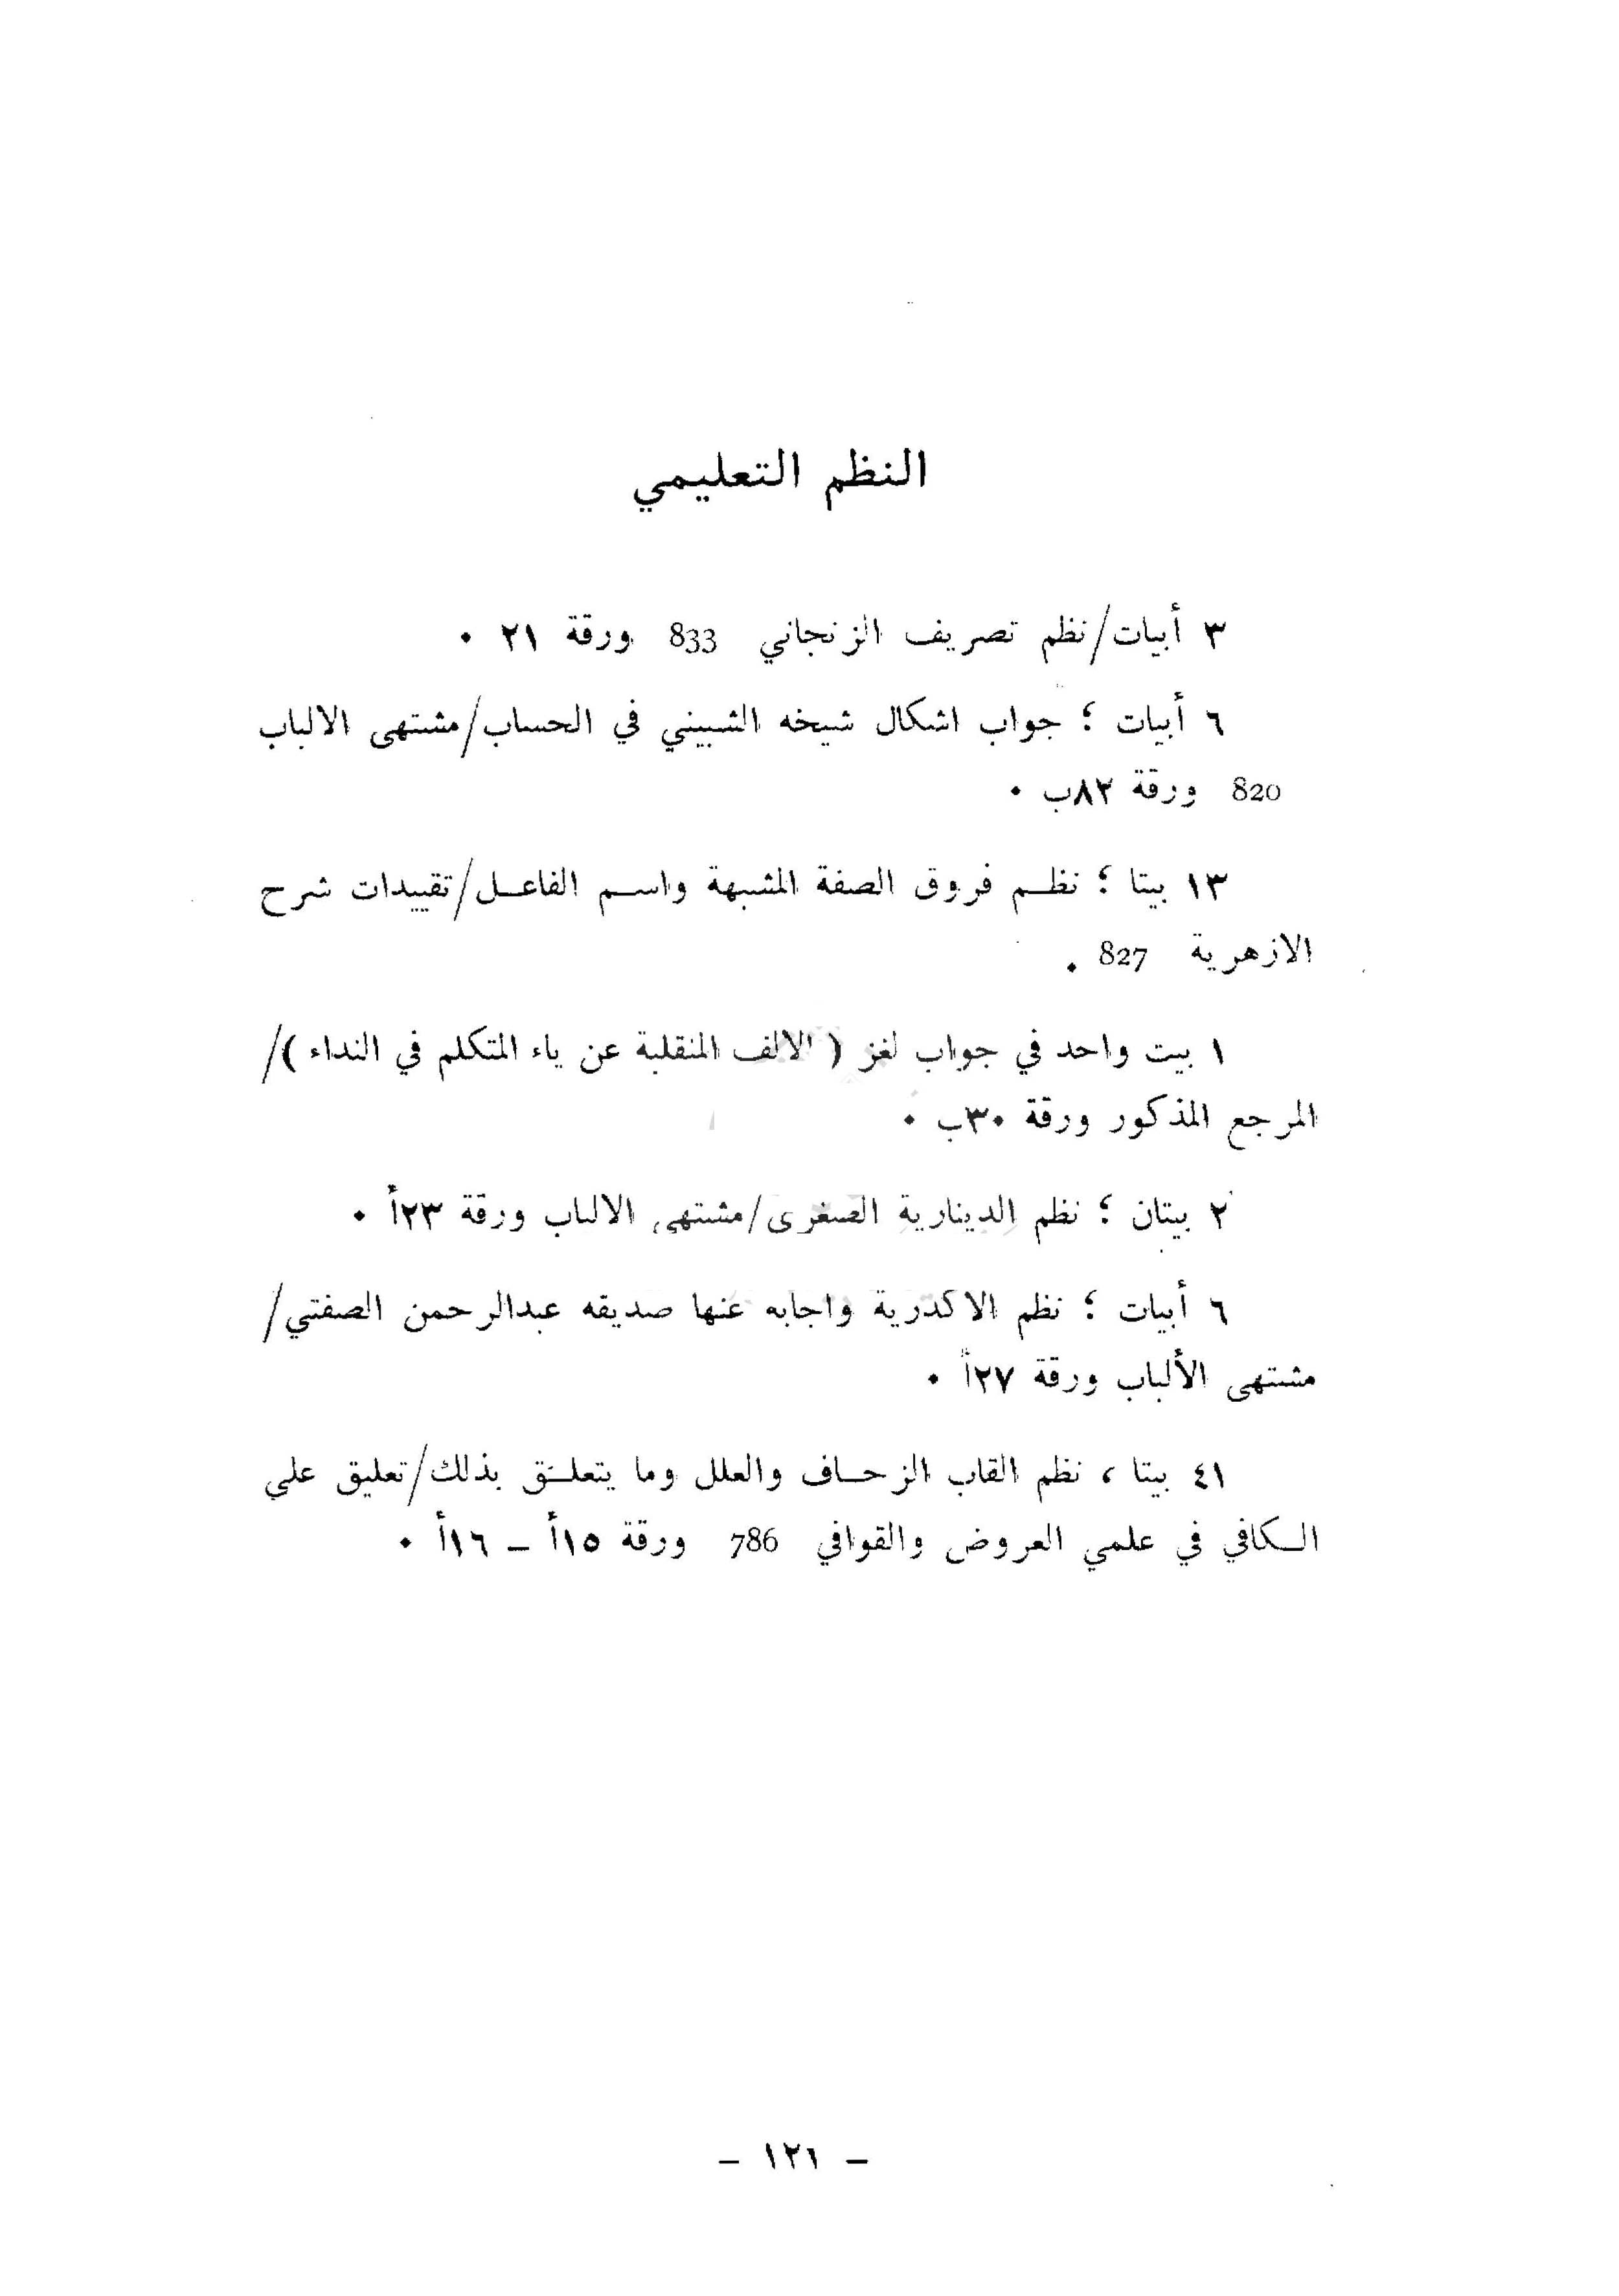 النظم التعليمي
٣ أبيات/نظم تصريف الزنجاني 833 ورقة ٢١ ٠
٦ أبيات ؛ جواب اشكال شيخه الشبيني في الحساب/مشتهى الالباب
820 ورقة ٨٢ب ٠
١٣ بيتا ؛ نظم فروق الصفة المشبهة واسم الفاعل/تقييدات شرح
الازهرية 827 .
١ بيت واحد في جواب لغز ( الالف المنقلبة عن ياء المتكلم في النداء )/
المرجع المذكور ورقة ٣٠ب ٠
٢ بيتان ؛ نظم الدينارية الصغرى/مشتهى الالباب ورقة ٢٣أ ٠
٦ أبيات ؛ نظم الاكدرية واجابه عنها صديقه عبدالرحمن الصفتي/
مشتهى الألباب ورقة ٢٧أ ٠
٤١ بيتا ، نظم القاب الزحاف والعلل وما يتعلق بذلك/تعليق علي
الكافي في علمي العروض والقوافي 786 ورقة ١٥أ – ١٦أ ٠
– ١٢٦ –